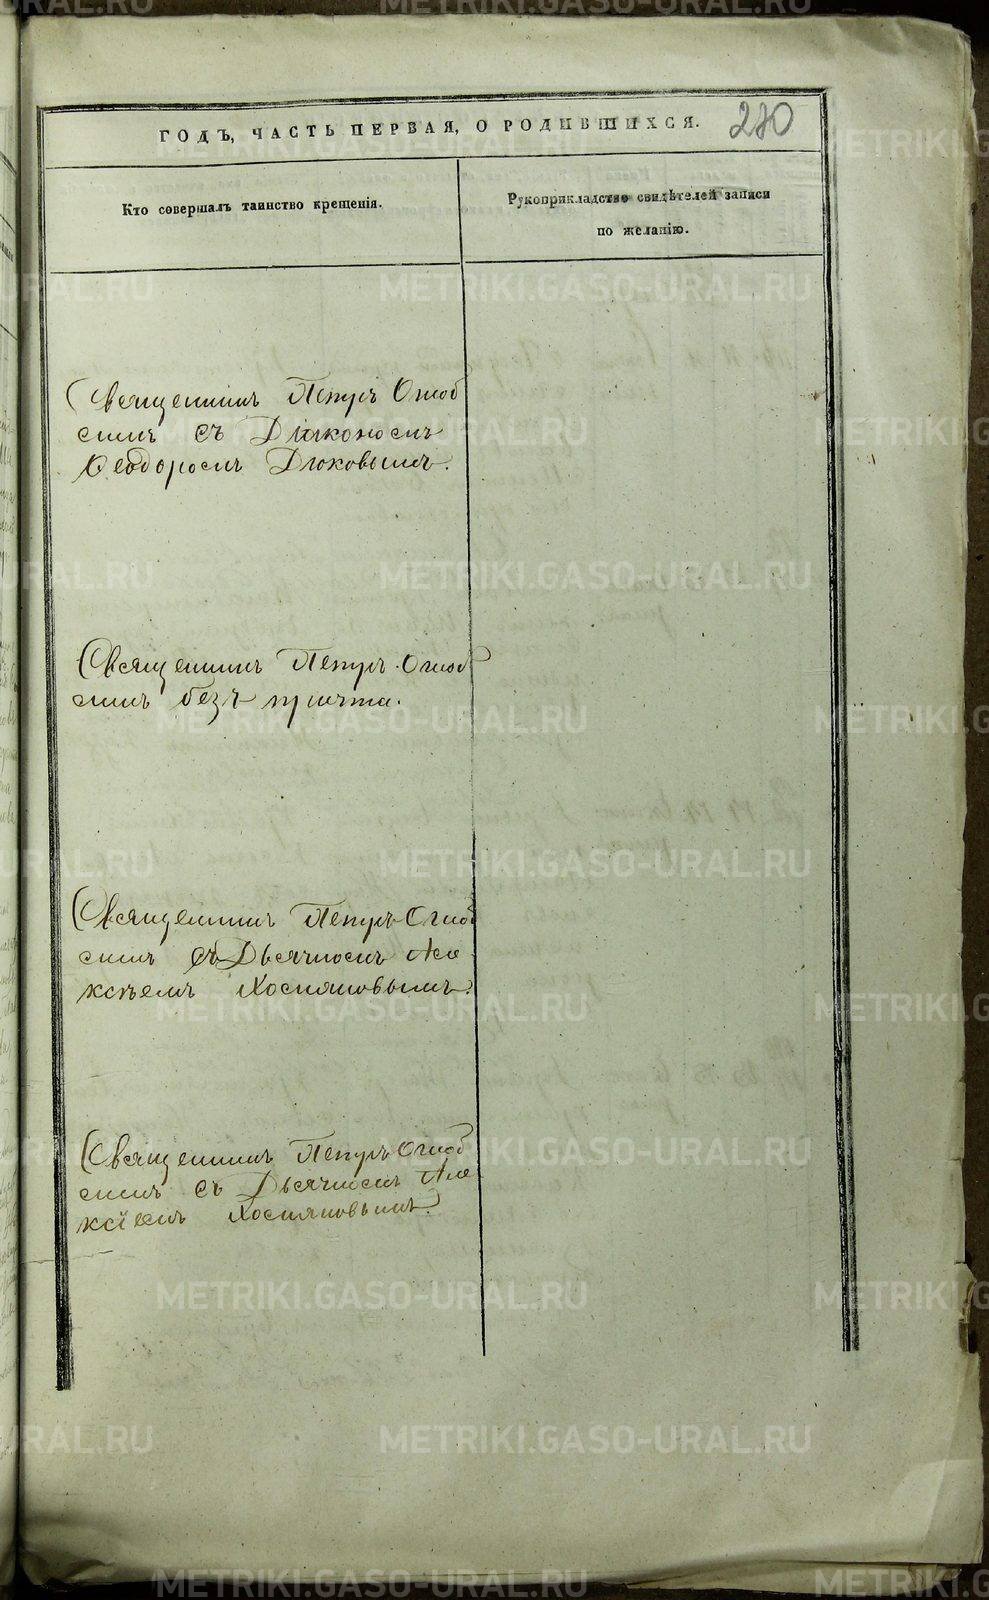 ГОДЪ, ЧАСТЬ ПЕРВАЯ, О РОДИВШИХСЯ.
280
Кто совершалъ таинство крещенія.
Рукоприкладство свидѣтелей записи
по желанію.
Священникъ Петръ
съ Діакономъ
Ѳеодоромъ Дюковымъ.
Священникъ Петръ
безъ причта.
Священникъ Петръ
съ Дьячкомъ Але
ксѣемъ
Священникъ Петръ
съ Дьячкомъ Але
ксіемъ
METRIKI.GASO-URAL.RU